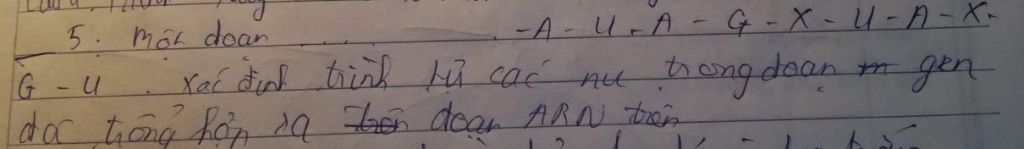 5. Một đoạn .......... -A-U-A-G-X-U-A-X-
G-U. Xác định trình tự các nu trong đoạn m gen
đã tổng hợp ra trên đoạn ARN trên